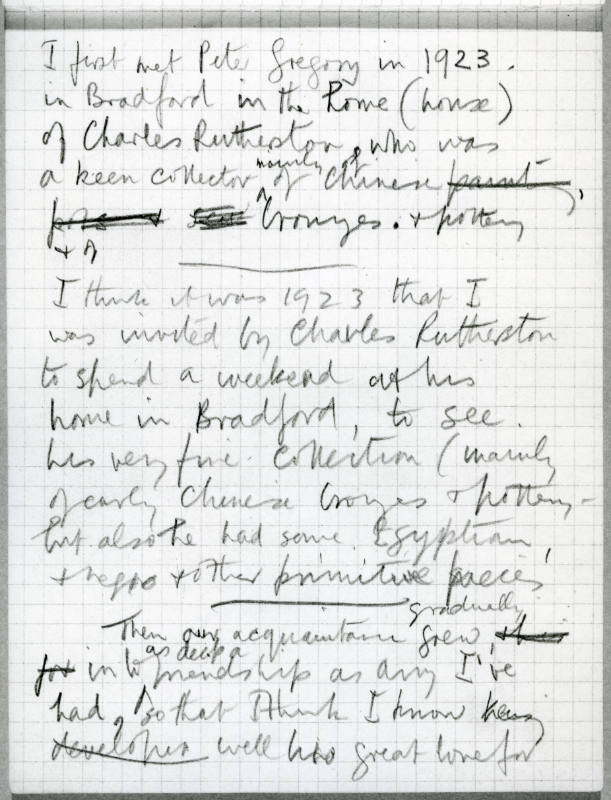 I first met Peter Gregory in 1923.
in Bradford in the Home (house)
of Charles Rutherston, who was
mainly of
a keen collector of Chinese paint,
bronzes. + pottery
+ of
I think it was 1923 that I
was invited by Charles Rutherston
to spend a weekend at his
home in Bradford, to see.
his very fine collection (mainly
of early Chinese bronzes + pottery -
but also he had some Egyptian,
+ negro + other primitive pieces
gradually
Then our acquaintance grew, this
as deep a
for into friendship as any I've
had, so that I think I know
developed well his great love for